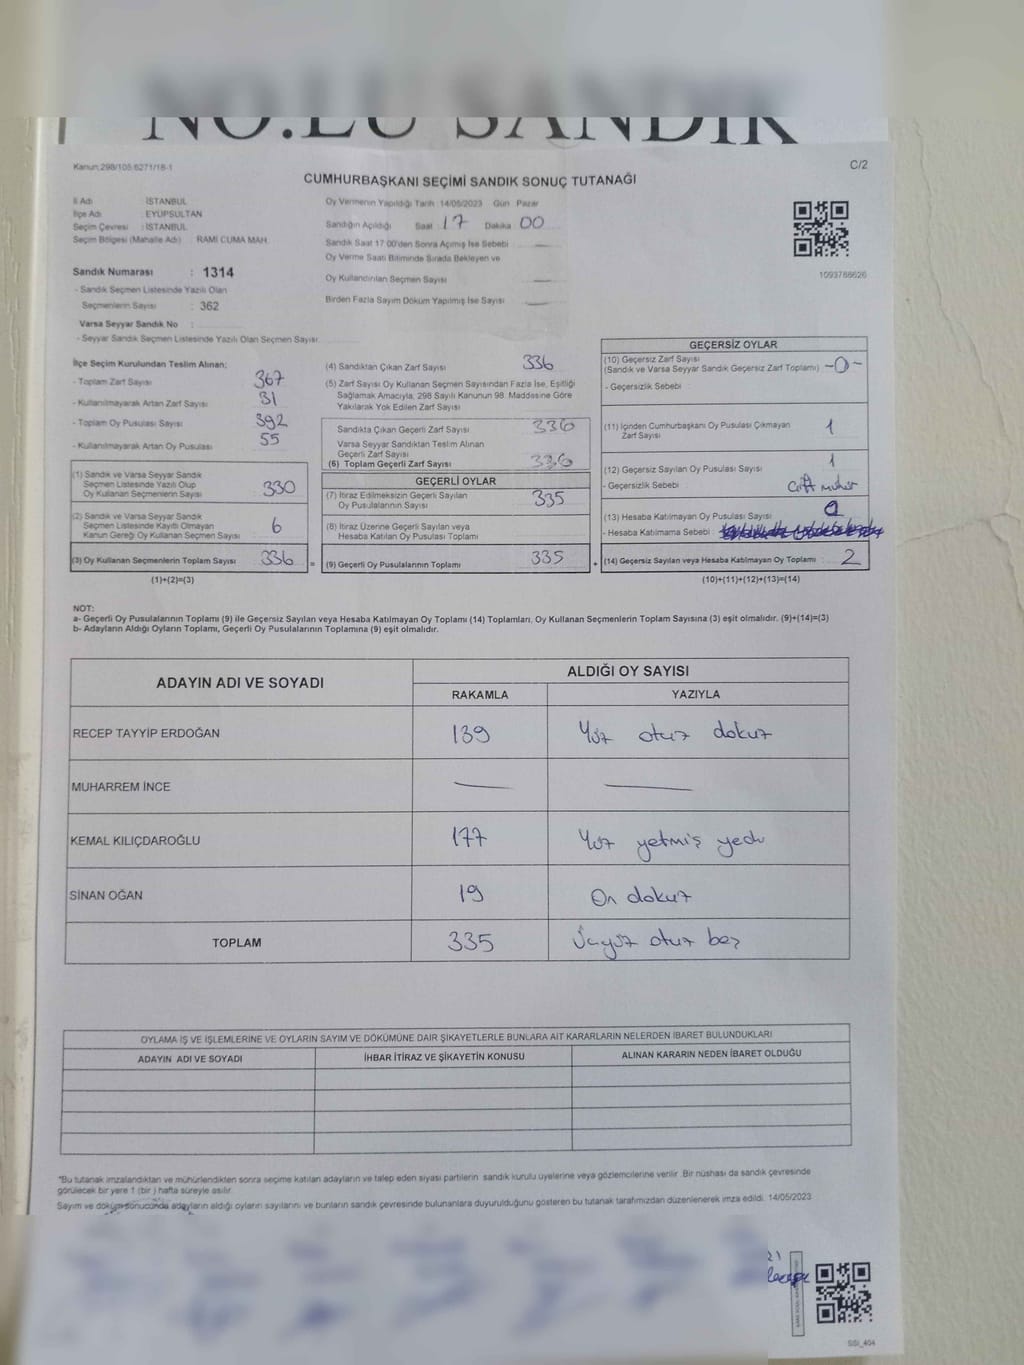 NO.LU SANDIK
Kanun:298/105 6271/18-1
C/2
CUMHURBAŞKANI SEÇİMİ SANDIK SONUÇ TUTANAĞI
İl Adı : İSTANBUL
İlçe Adı : EYÜPSULTAN
Seçim Çevresi : İSTANBUL
Seçim Bölgesi (Mahalle Adı) : RAMİ CUMA MAH.
Sandık Numarası : 1314
- Sandık Seçmen Listesinde Yazılı Olan
Seçmenlerin Sayısı : 362
Varsa Seyyar Sandık No :
- Seyyar Sandık Seçmen Listesinde Yazılı Olan Seçmen Sayısı:
Oy Vermenin Yapıldığı Tarih :14/05/2023 Gün Pazar
Sandığın Açıldığı Saat 17 Dakika 00
Sandık Saat 17:00'den Sonra Açılmış İse Sebebi —
Oy Verme Saati Bitiminde Sırada Bekleyen ve
Oy Kullandırılan Seçmen Sayısı —
Birden Fazla Sayım Döküm Yapılmış İse Sayısı —
1093786626
İlçe Seçim Kurulundan Teslim Alınan:
- Toplam Zarf Sayısı 367
- Kullanılmayarak Artan Zarf Sayısı 31
- Toplam Oy Pusulası Sayısı 392
- Kullanılmayarak Artan Oy Pusulası 55
(1) Sandık ve Varsa Seyyar Sandık
Seçmen Listesinde Yazılı Olup
Oy Kullanan Seçmenlerin Sayısı 330
(2) Sandık ve Varsa Seyyar Sandık
Seçmen Listesinde Kayıtlı Olmayan
Kanun Gereği Oy Kullanan Seçmen Sayısı 6
(3) Oy Kullanan Seçmenlerin Toplam Sayısı 336 =
(1)+(2)=(3)
(4) Sandıktan Çıkan Zarf Sayısı 336
(5) Zarf Sayısı Oy Kullanan Seçmen Sayısından Fazla İse, Eşitliği
Sağlamak Amacıyla, 298 Sayılı Kanunun 98. Maddesine Göre
Yakılarak Yok Edilen Zarf Sayısı
Sandıkta Çıkan Geçerli Zarf Sayısı 336
Varsa Seyyar Sandıktan Teslim Alınan
Geçerli Zarf Sayısı
(6) Toplam Geçerli Zarf Sayısı 336
GEÇERLİ OYLAR
(7) İtiraz Edilmeksizin Geçerli Sayılan
Oy Pusulalarının Sayısı 335
(8) İtiraz Üzerine Geçerli Sayılan veya
Hesaba Katılan Oy Pusulası Toplamı
(9) Geçerli Oy Pusulalarının Toplamı 335 +
GEÇERSİZ OYLAR
(10) Geçersiz Zarf Sayısı
(Sandık ve Varsa Seyyar Sandık Geçersiz Zarf Toplamı) -0-
- Geçersizlik Sebebi :
(11) İçinden Cumhurbaşkanı Oy Pusulası Çıkmayan
Zarf Sayısı 1
(12) Geçersiz Sayılan Oy Pusulası Sayısı 1
- Geçersizlik Sebebi : Çift mühür
(13) Hesaba Katılmayan Oy Pusulası Sayısı 0
- Hesaba Katılmama Sebebi :
(14) Geçersiz Sayılan veya Hesaba Katılmayan Oy Toplamı 2
(10)+(11)+(12)+(13)=(14)
NOT:
a- Geçerli Oy Pusulalarının Toplamı (9) ile Geçersiz Sayılan veya Hesaba Katılmayan Oy Toplamı (14) Toplamları, Oy Kullanan Seçmenlerin Toplam Sayısına (3) eşit olmalıdır. (9)+(14)=(3)
b- Adayların Aldığı Oyların Toplamı, Geçerli Oy Pusulalarının Toplamına (9) eşit olmalıdır.
ADAYIN ADI VE SOYADI ALDIĞI OY SAYISI
RAKAMLA YAZIYLA
RECEP TAYYİP ERDOĞAN 139 Yüz otuz dokuz
MUHARREM İNCE — —
KEMAL KILIÇDAROĞLU 177 Yüz yetmiş yedi
SİNAN OĞAN 19 On dokuz
TOPLAM 335 Üçyüz otuz beş
OYLAMA İŞ VE İŞLEMLERİNE VE OYLARIN SAYIM VE DÖKÜMÜNE DAİR ŞİKAYETLERLE BUNLARA AİT KARARLARIN NELERDEN İBARET BULUNDUKLARI
ADAYIN ADI VE SOYADI İHBAR İTİRAZ VE ŞİKAYETİN KONUSU ALINAN KARARIN NEDEN İBARET OLDUĞU
*Bu tutanak imzalandıktan ve mühürlendikten sonra seçime katılan adayların ve talep eden siyasi partilerin sandık kurulu üyelerine veya gözlemcilerine verilir. Bir nüshası da sandık çevresinde
görülecek bir yere 1 (bir) hafta süreyle asılır.
Sayım ve döküm sonucunda adayların aldığı oyların sayılarını ve bunların sandık çevresinde bulunanlara duyurulduğunu gösteren bu tutanak tarafımızdan düzenlenerek imza edildi. 14/05/2023
SSİ_404